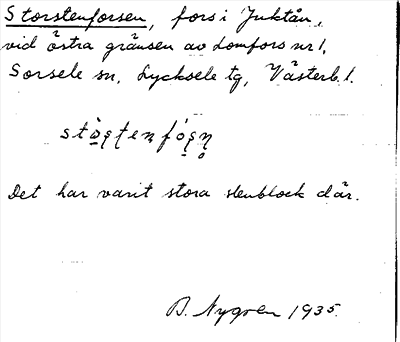 Storstenforsen, fors i Juktån,
vid östra gränsen av Lomfors nr 1,
Sorsele sn, Lycksele tg, Västerb. l.
Det har varit stora stenblock där.
B. Nygren 1935.